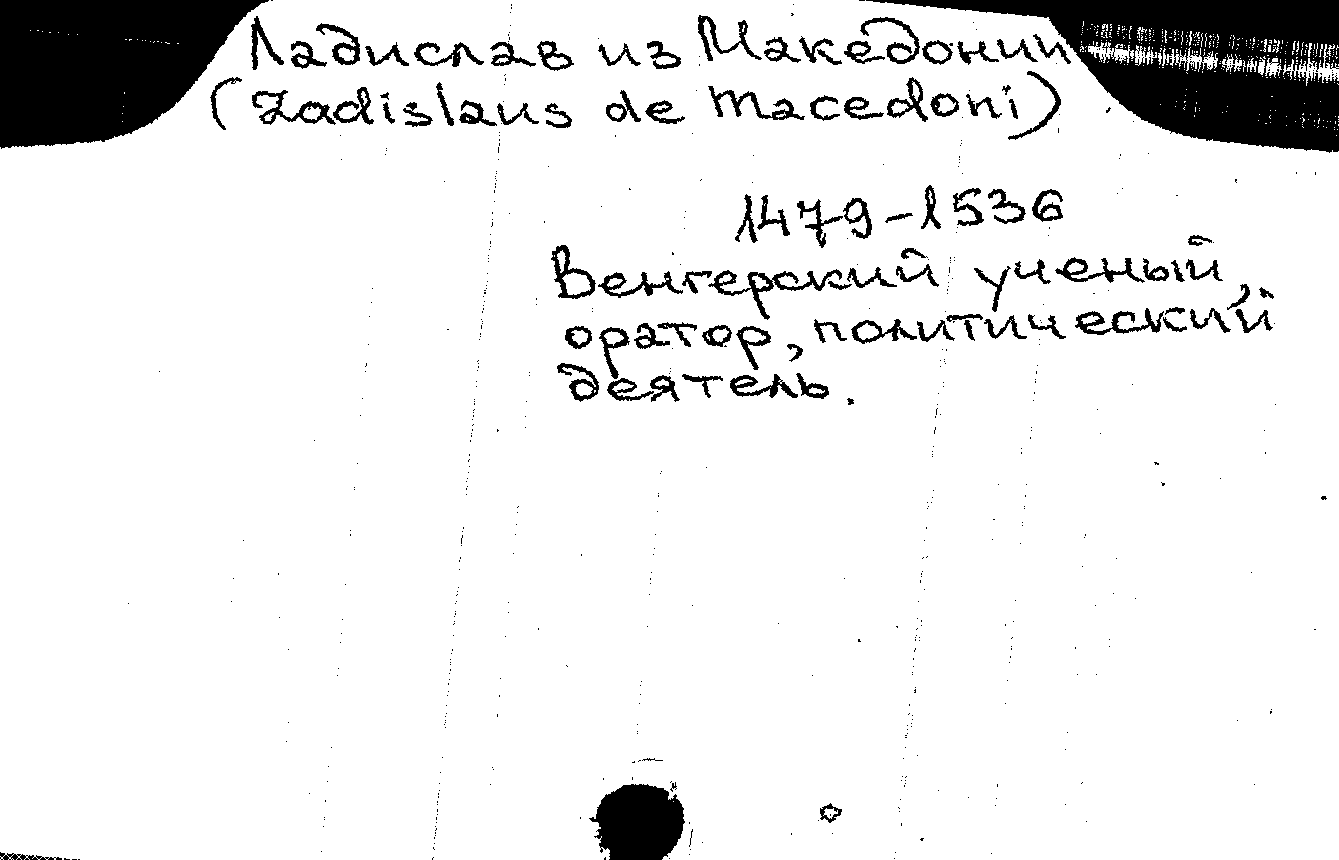 Ладислав из Македонии
(Ladislaus de Macedoni)
1479-1536
Венгерский ученый,
оратор, политический
деятель.